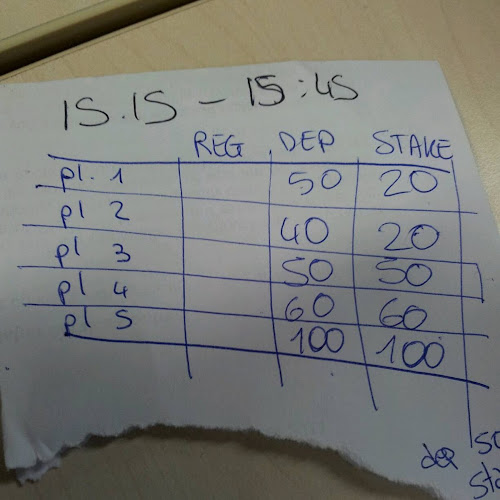 15.15 - 15:45
REG DEP STAKE
pl. 1 50 20
pl 2 40 20
pl 3 50 50
pl 4 60 60
pl 5 100 100
dep